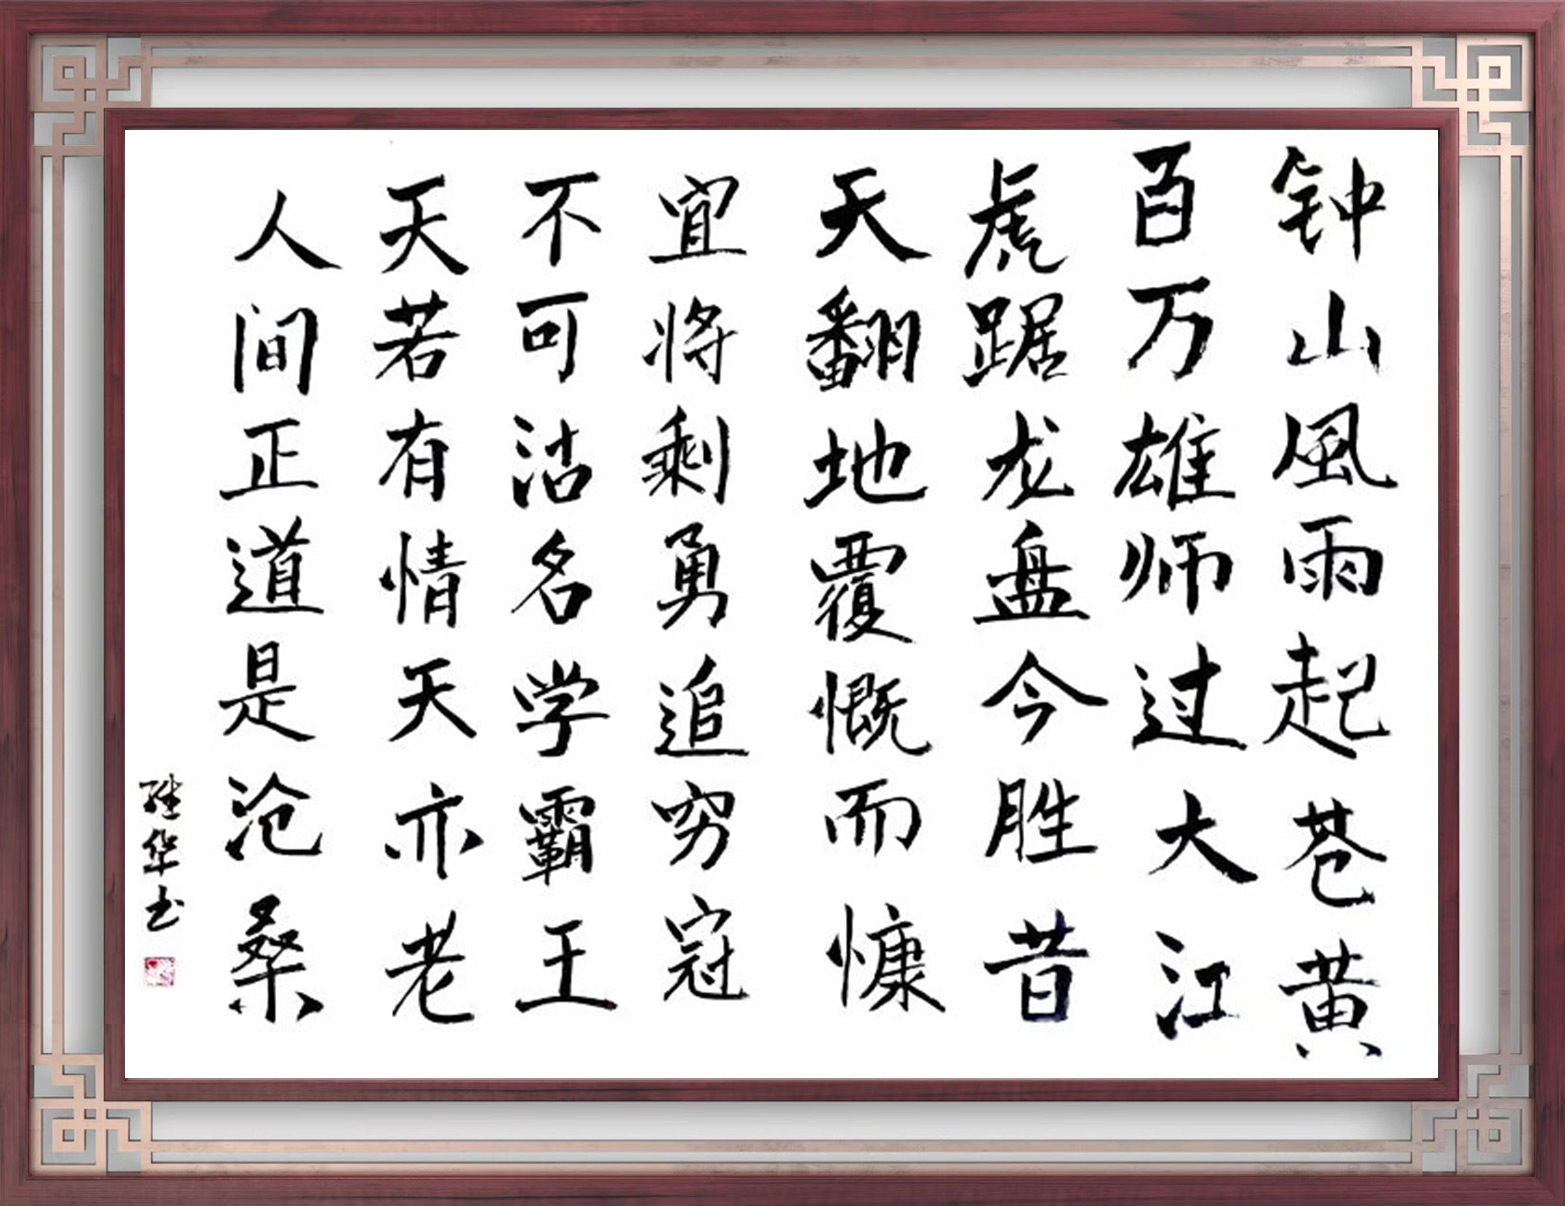 钟山風雨起苍黄
百万雄师过大江
虎踞龙盘今胜昔
天翻地覆慨而慷
宜将剩勇追穷冠
不可沽名学霸王
天若有情天亦老
人间正道是沧桑
华书